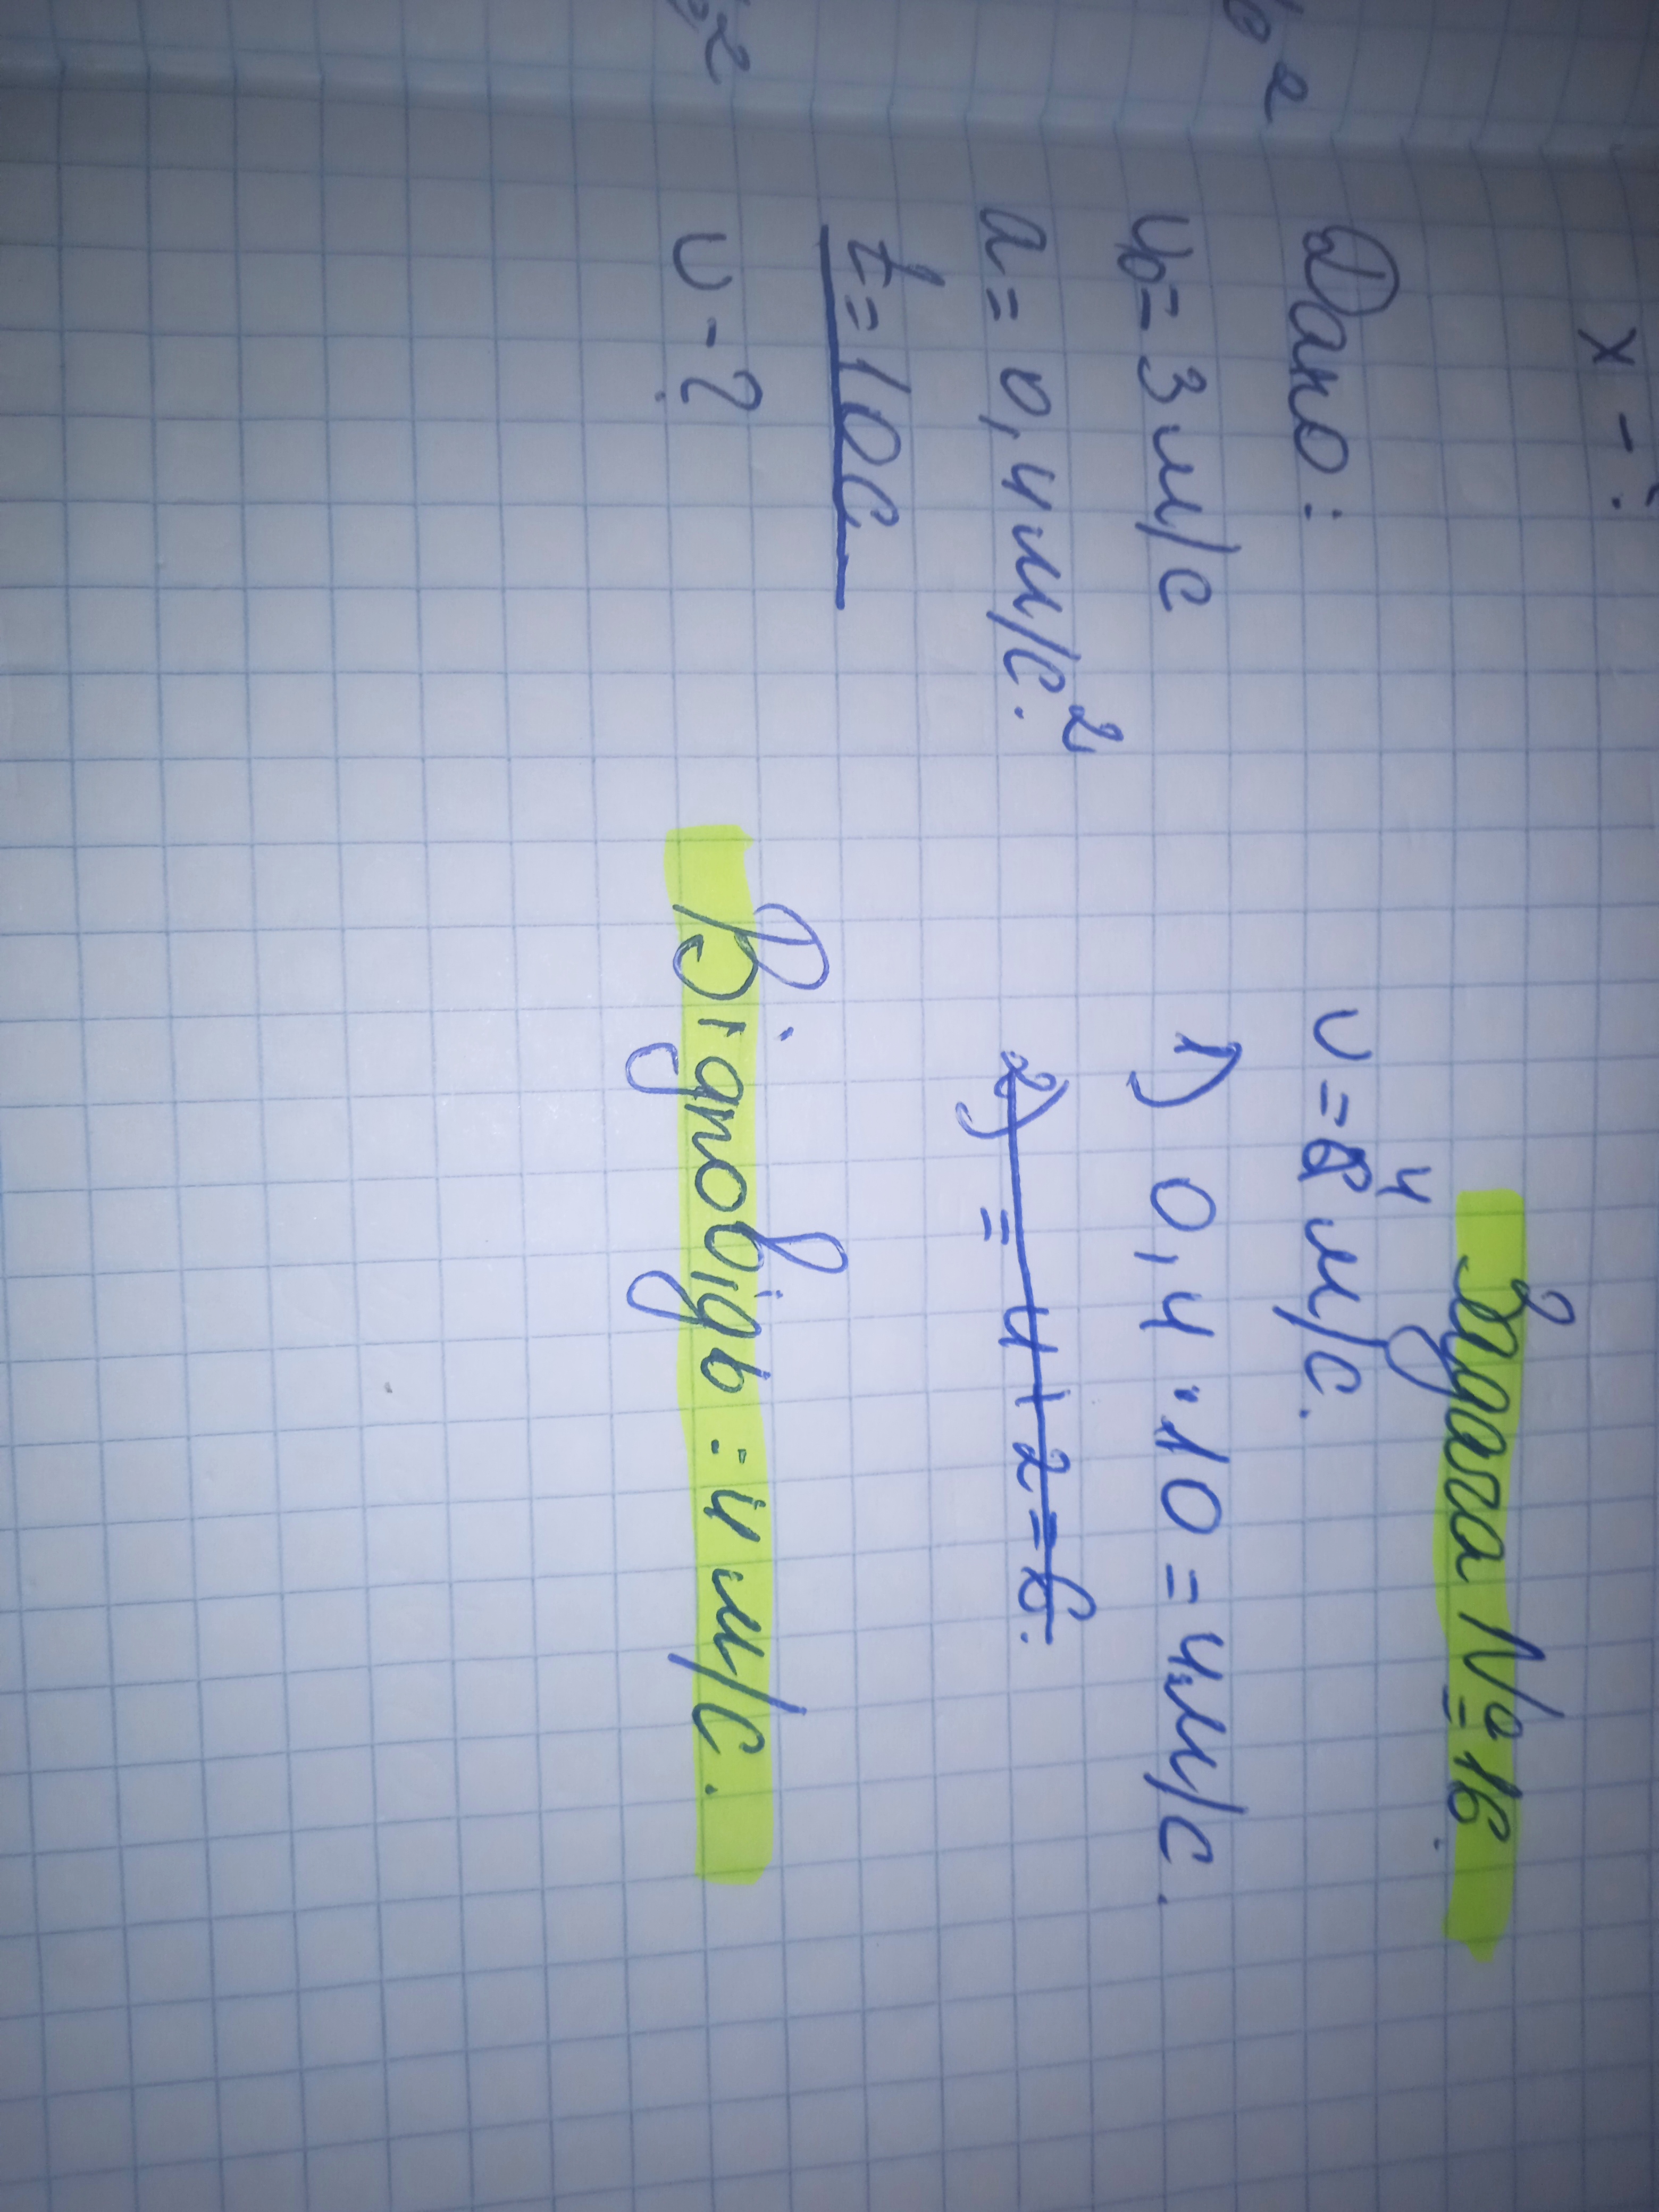 x - ?
Задача № 16.
Дано:
υ = 4 м/с.
υ₀ = 3 м/с
1) 0,4 · 10 = 4 м/с.
a = 0,4 м/с.²
2) = 4 + 2 = 6.
t = 10 с
υ - ?
Відповідь: 4 м/с.